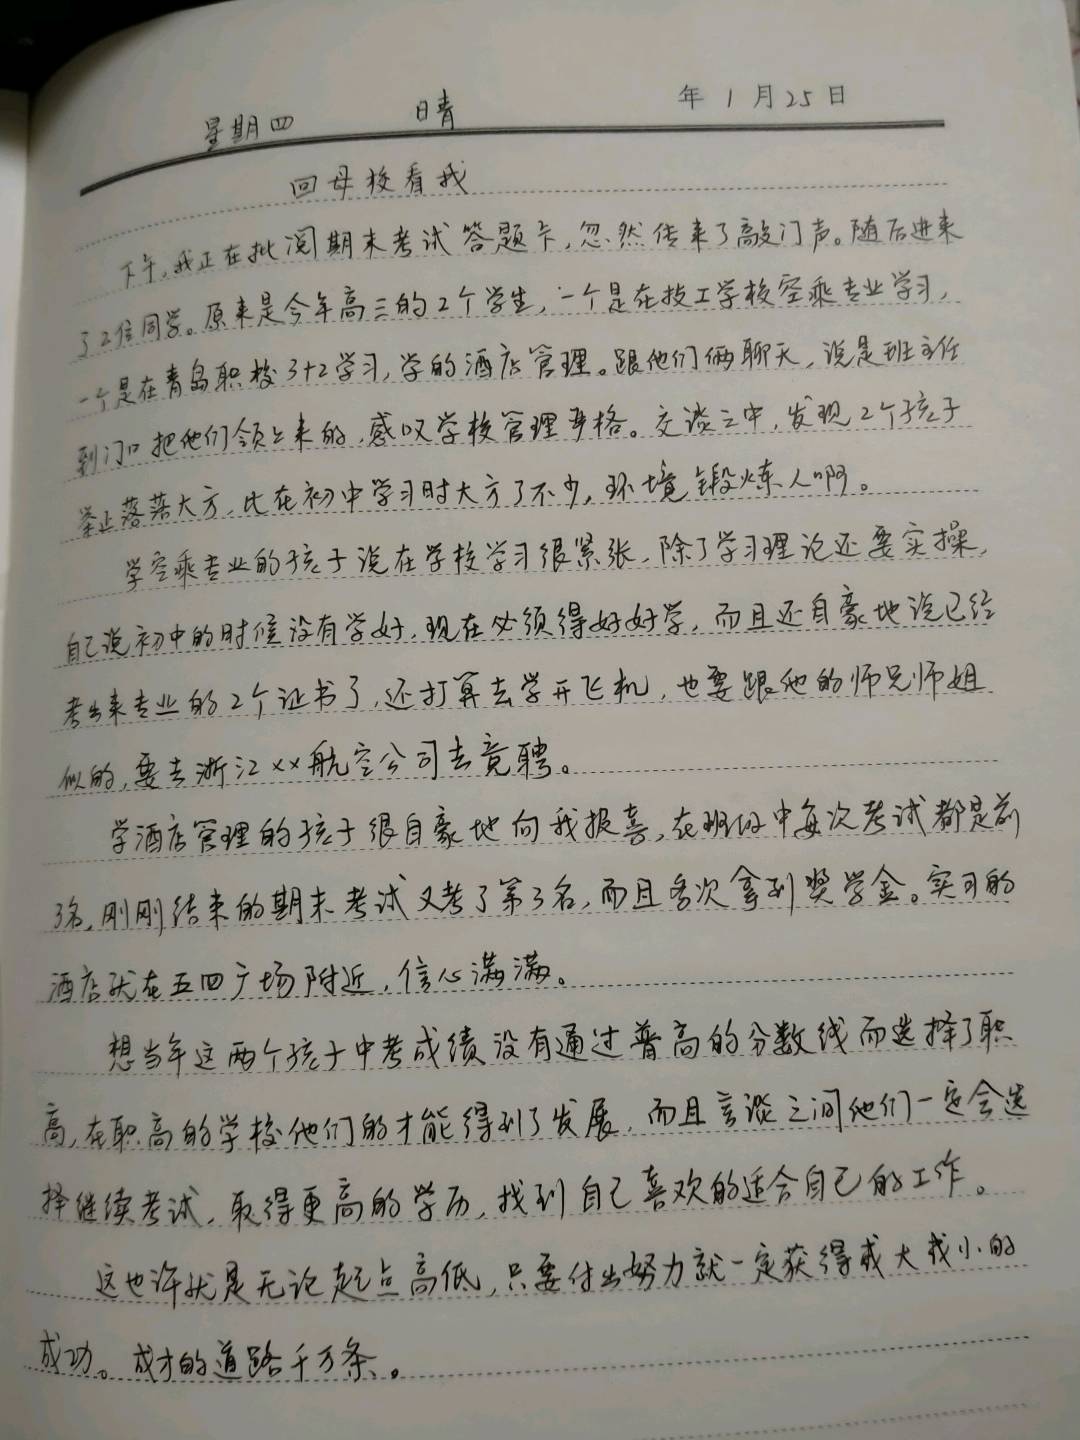 星期四 晴 年1月25日
回母校看我
下午,我正在批阅期末考试答题卡,忽然传来了敲门声。随后进来
了2位同学。原来是今年高三的2个学生,一个是在技工学校空乘专业学习,
一个是在青岛职校3+2学习,学的酒店管理。跟他们俩聊天,说是班主任
到门口把他们领上来的,感叹学校管理严格。交谈之中,发现2个孩子
举止落落大方,比在初中学习时大方了不少,环境锻炼人啊。
学空乘专业的孩子说在学校学习很紧张,除了学习理论还要实操,
自己说初中的时候没有学好,现在必须得好好学,而且还自豪地说已经
考出来专业的2个证书了,还打算去学开飞机,也要跟他的师兄师姐
似的,要去浙江××航空公司去竟聘。
学酒店管理的孩子很自豪地向我报喜,在班级中每次考试都是前
3名,刚刚结束的期末考试又考了第3名,而且多次拿到奖学金。实习的
酒店就在五四广场附近,信心满满。
想当年这两个孩子中考成绩没有通过普高的分数线而选择了职
高,在职高的学校他们的才能得到了发展,而且言谈之间他们一定会选
择继续考试,取得更高的学历,找到自己喜欢的适合自己的工作。
这也许就是无论起点高低,只要付出努力就一定获得或大或小的
成功。成才的道路千万条。